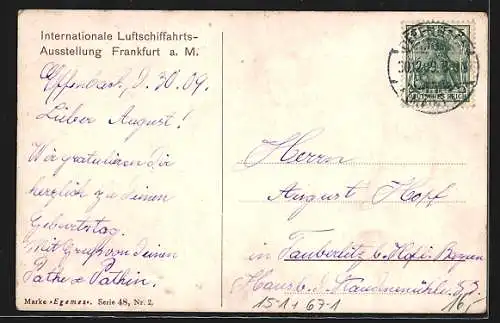 Internationale Luftschiffahrts-
Ausstellung Frankfurt a. M.
Offenbach, d. 30.09.
Lieber August!
Wir gratulieren Dir
herzlich zu Deinen
Geburtstag.
Mit Gruß von Deinen
Pathe & Pathin.
Marke »Egemes«. Serie 48, Nr. 2.
Herrn
August Hopf
in Tauberlitz b. Hof i. Bayern
Hausb. d.
15-1+ 67-1
16,-
DEUTSCHES REICH